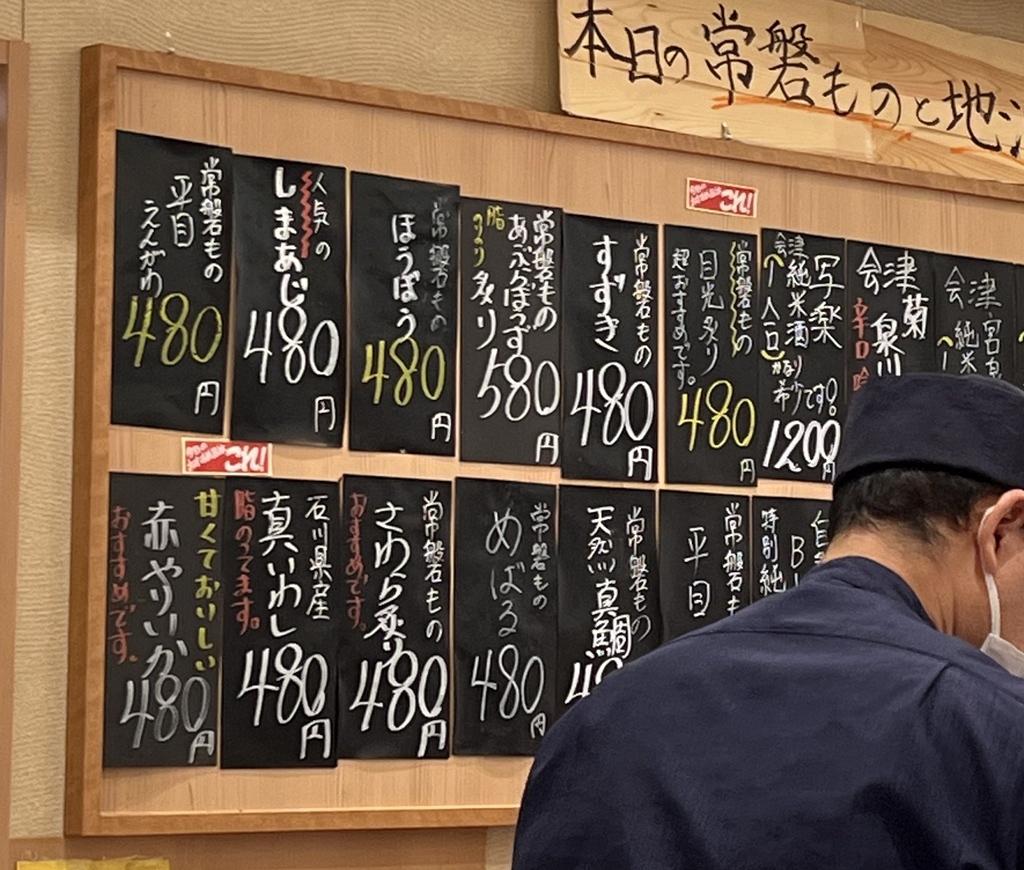 本日の常磐ものと地
常磐もの
平目
えんがわ
480
円
人気の
しまあじ
480
円
常磐もの
ほうぼう
480
円
常磐もの
あぶらぼうず
脂のり
炙り
580
円
常磐もの
すずき
480
円
これ!
常磐もの
目光炙り
超おすすめです。
480
円
写楽
会津
純米酒
一人一口
かなり
希少です!
1200
円
会津
菊
泉川
辛口
会津
宮
純米
甘くておいしい
赤やりいか
おすすめです。
480
円
これ!
石川県産
真いわし
脂のってます。
480
円
常磐もの
さわら炙り
おすすめです。
480
円
常磐もの
めばる
480
円
常磐もの
天然
真鯛
常磐も
平目
特別純